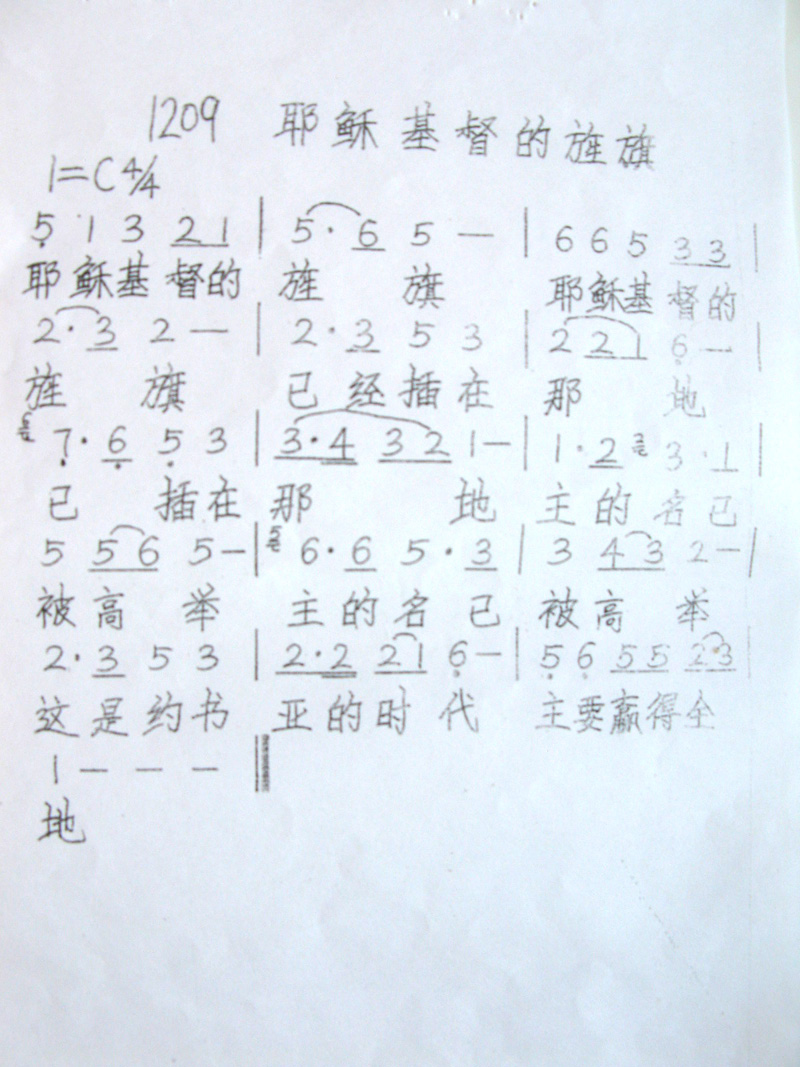 1209 耶稣基督的旌旗
1=C 4/4
5 1 3 2 1 | 5· 6 5 — | 6 6 5 3 3 |
耶稣基督的 旌 旗 耶稣基督的
2· 3 2 — | 2· 3 5 3 | 2 2 1 6 — |
旌 旗 已经插在 那 地
7· 6 5 3 | 3·4 3 2 1 — | 1·2 3·1 |
已 插在 那 地 主的名已
5 5 6 5 — | 6·6 5·3 | 3 4 3 2 — |
被高 举 主的名已 被高 举
2·3 5 3 | 2·2 2 1 6 — | 5 6 5 5 2 3 |
这是约书 亚的时代 主要赢得全
1 — — — ‖
地